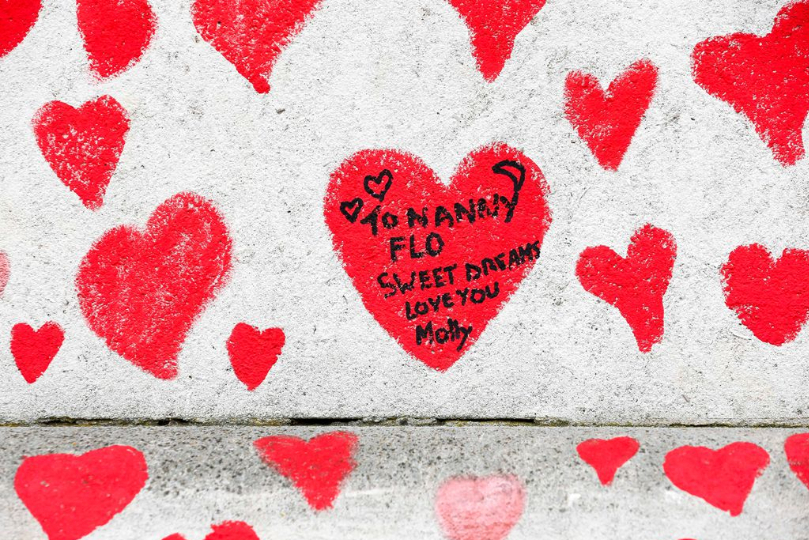 To NANNY
FLO
SWEET DREAMS
LOVE YOU
Molly